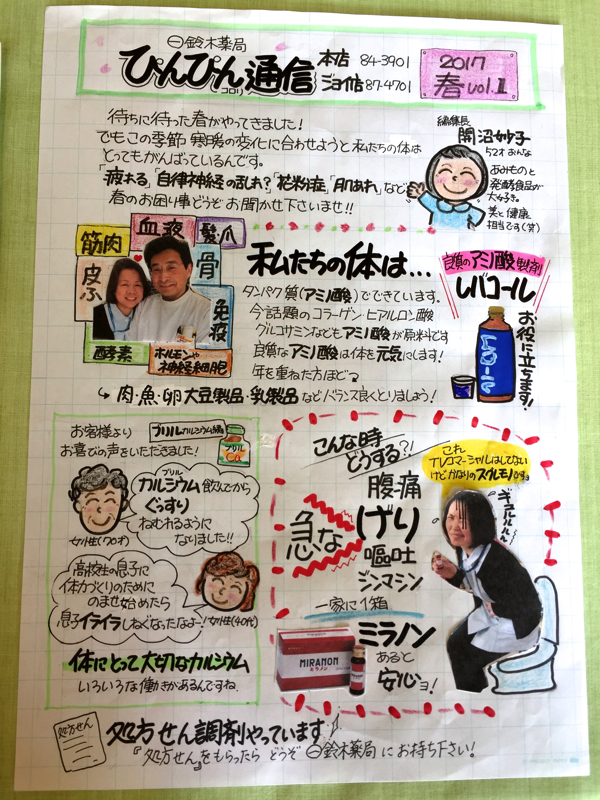 ㊀鈴木薬局
ぴんぴん通信
コロリ
本店 84-3901
ジョイ店 87-4701
2017
春 vol.1
待ちに待った春がやってきました!
でもこの季節 寒暖の変化に合わせようと私たちの体は
とってもがんばっているんです。
「疲れる」「自律神経の乱れ?」「花粉症」「肌あれ」など
春のお困り事どうぞお聞かせ下さいませ!!
編集長
開沼妙子
52才おんな
あみものと
発酵食品が
大好き。
美と健康
担当です(笑)
筋肉
血液
髪爪
皮ふ
骨
免疫
酵素
ホルモンや
神経細胞
私たちの体は…
タンパク質(アミノ酸)でできています。
今話題のコラーゲン・ヒアルロン酸
グルコサミンなどもアミノ酸が原料です
良質なアミノ酸は体を元気にします!
年を重ねた方ほど。
↳ 肉・魚・卵・大豆製品・乳製品などバランス良くとりましょう!
良質のアミノ酸製剤
レバコール
お役に立ちます!
お客様より
お喜びの声をいただきました!
プリルカルシウム編
プリル
Ca
プリル
カルシウム飲んでから
ぐっすり
ねむれるように
なりました!!
女性(70才)
高校生の息子に
体力づくりのために
のませ始めたら
息子イライラしなくなったなよー!
女性(40代)
体にとって大切なカルシウム
いろいろな働きがあるんですね
こんな時
どうする?!
急な
腹痛
げり
嘔吐
ジンマシン
一家に1箱
ミラノン
あると
安心ョ!
MIRANON
ミラノン
これ
TVコマーシャルはしてない
けどかなりのスグレモノです。
ギュルルルル
処方せん
処方せん調剤やっています!
『処方せん』をもらったら どうぞ ㊀鈴木薬局 にお持ち下さい!